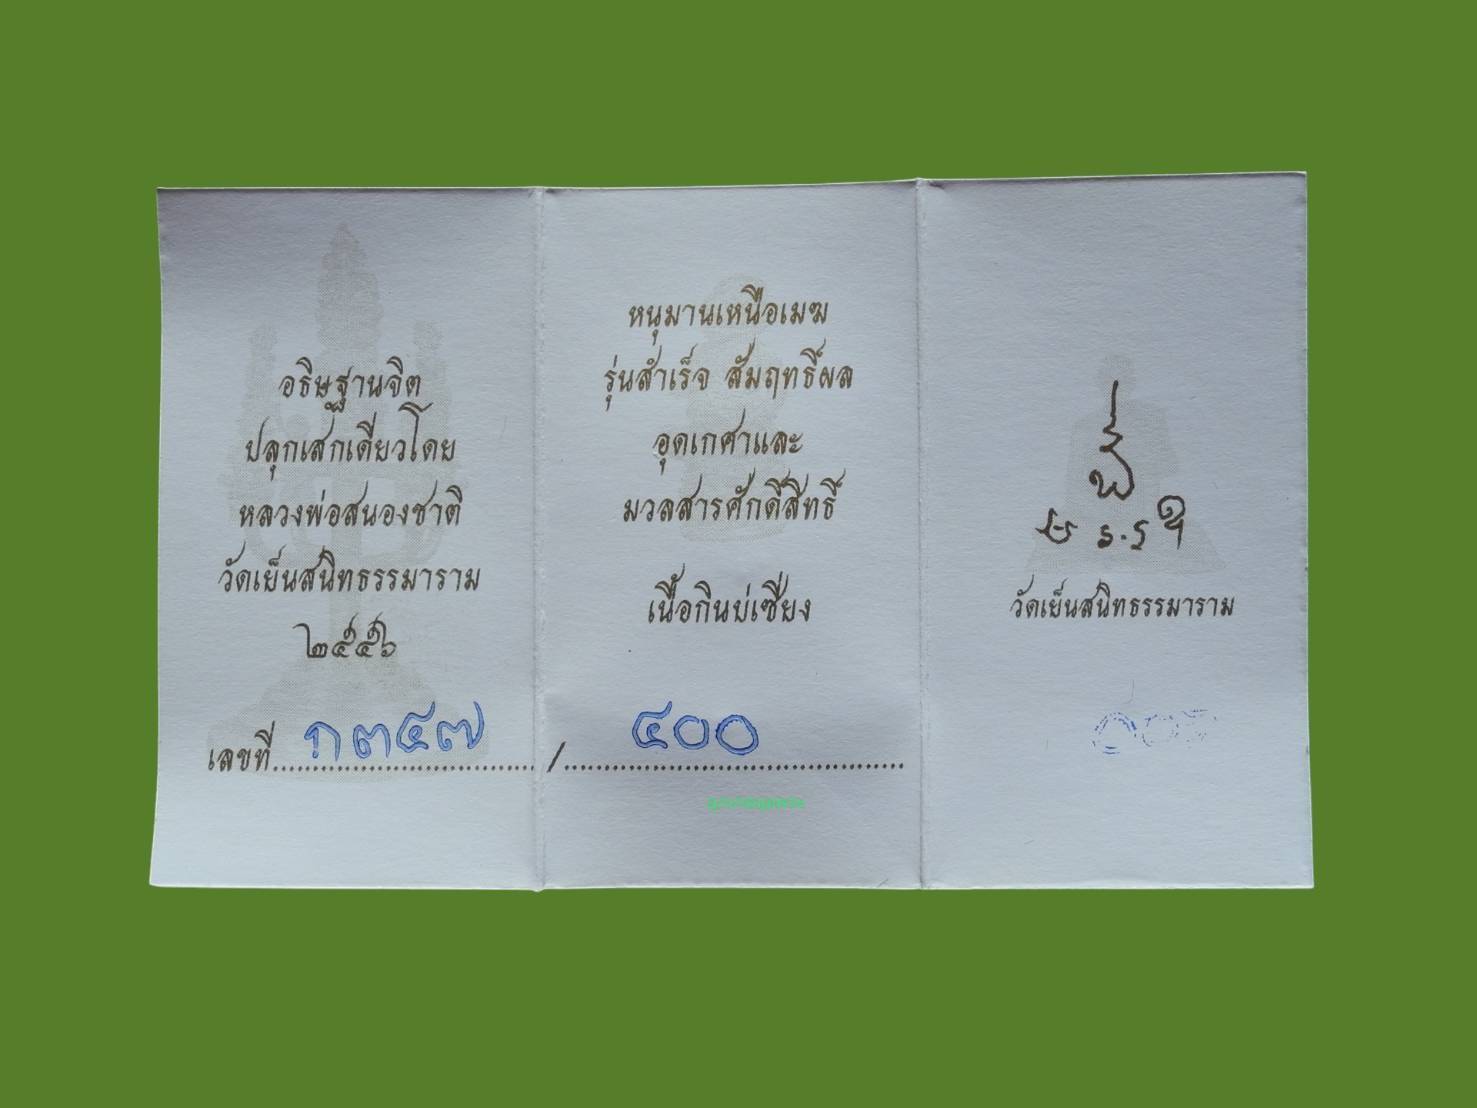 อธิษฐานจิต
ปลุกเสกเดี่ยวโดย
หลวงพ่อสนองชาติ
วัดเย็นสนิทธรรมาราม
๒๕๕๖
เลขที่ ก๓๔๗ / ๔๐๐
หนุมานเหนือเมฆ
รุ่นสำเร็จ สัมฤทธิ์ผล
อุดเกศาและ
มวลสารศักดิ์สิทธิ์
เนื้อกินบ่เซี่ยง
วัดเย็นสนิทธรรมาราม